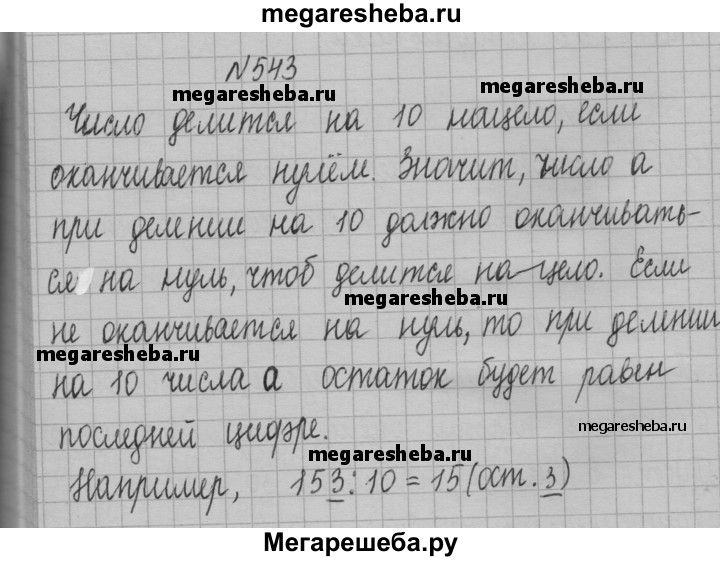 megaresheba.ru
N543
megaresheba.ru megaresheba.ru
Число делится на 10 нацело, если
оканчивается нулём. Значит, число а
при делении на 10 должно оканчивать-
ся на нуль, чтоб делится на цело. Если
megaresheba.ru
не оканчивается на нуль, то при делении
megaresheba.ru
на 10 числа а остаток будет равен
megaresheba.ru
последней цифре.
megaresheba.ru
Например, 153:10=15(ост.3)
Мегарешеба.ру